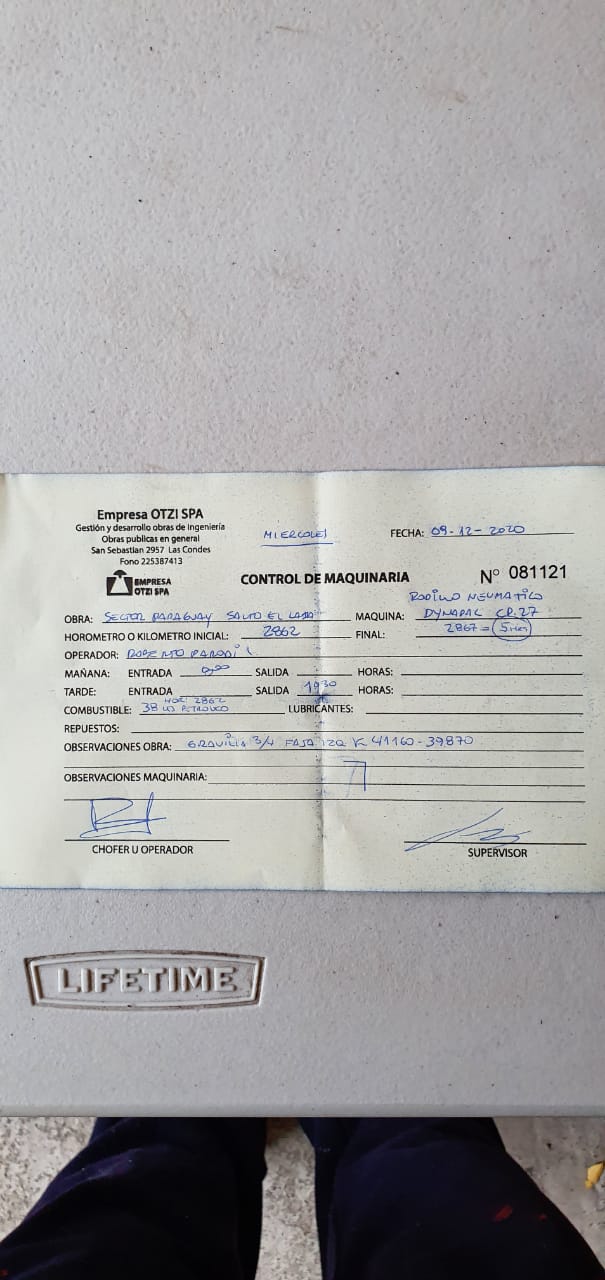 Empresa OTZI SPA
Gestión y desarrollo obras de Ingeniería
Obras publicas en general
San Sebastian 2957 Las Condes
Fono 225387413
EMPRESA
OTZI SPA
MIERCOLES
FECHA: 09-12-2020
CONTROL DE MAQUINARIA
Nº 081121
OBRA: SECTOR PARAGUAY SALTO EL
RODILLO NEUMATICO
MAQUINA: DYNAPAC CP.27
HOROMETRO O KILOMETRO INICIAL: 2862
FINAL: 2867 =
OPERADOR:
MAÑANA: ENTRADA SALIDA HORAS:
TARDE: ENTRADA SALIDA 1930 HORAS:
HOR: 2862
COMBUSTIBLE: 38 LTS PETROLEO LUBRICANTES:
REPUESTOS:
OBSERVACIONES OBRA: GRAVILLA 3/4 FAJA IZQ K 41160-39870
OBSERVACIONES MAQUINARIA:
CHOFER U OPERADOR
SUPERVISOR
LIFETIME